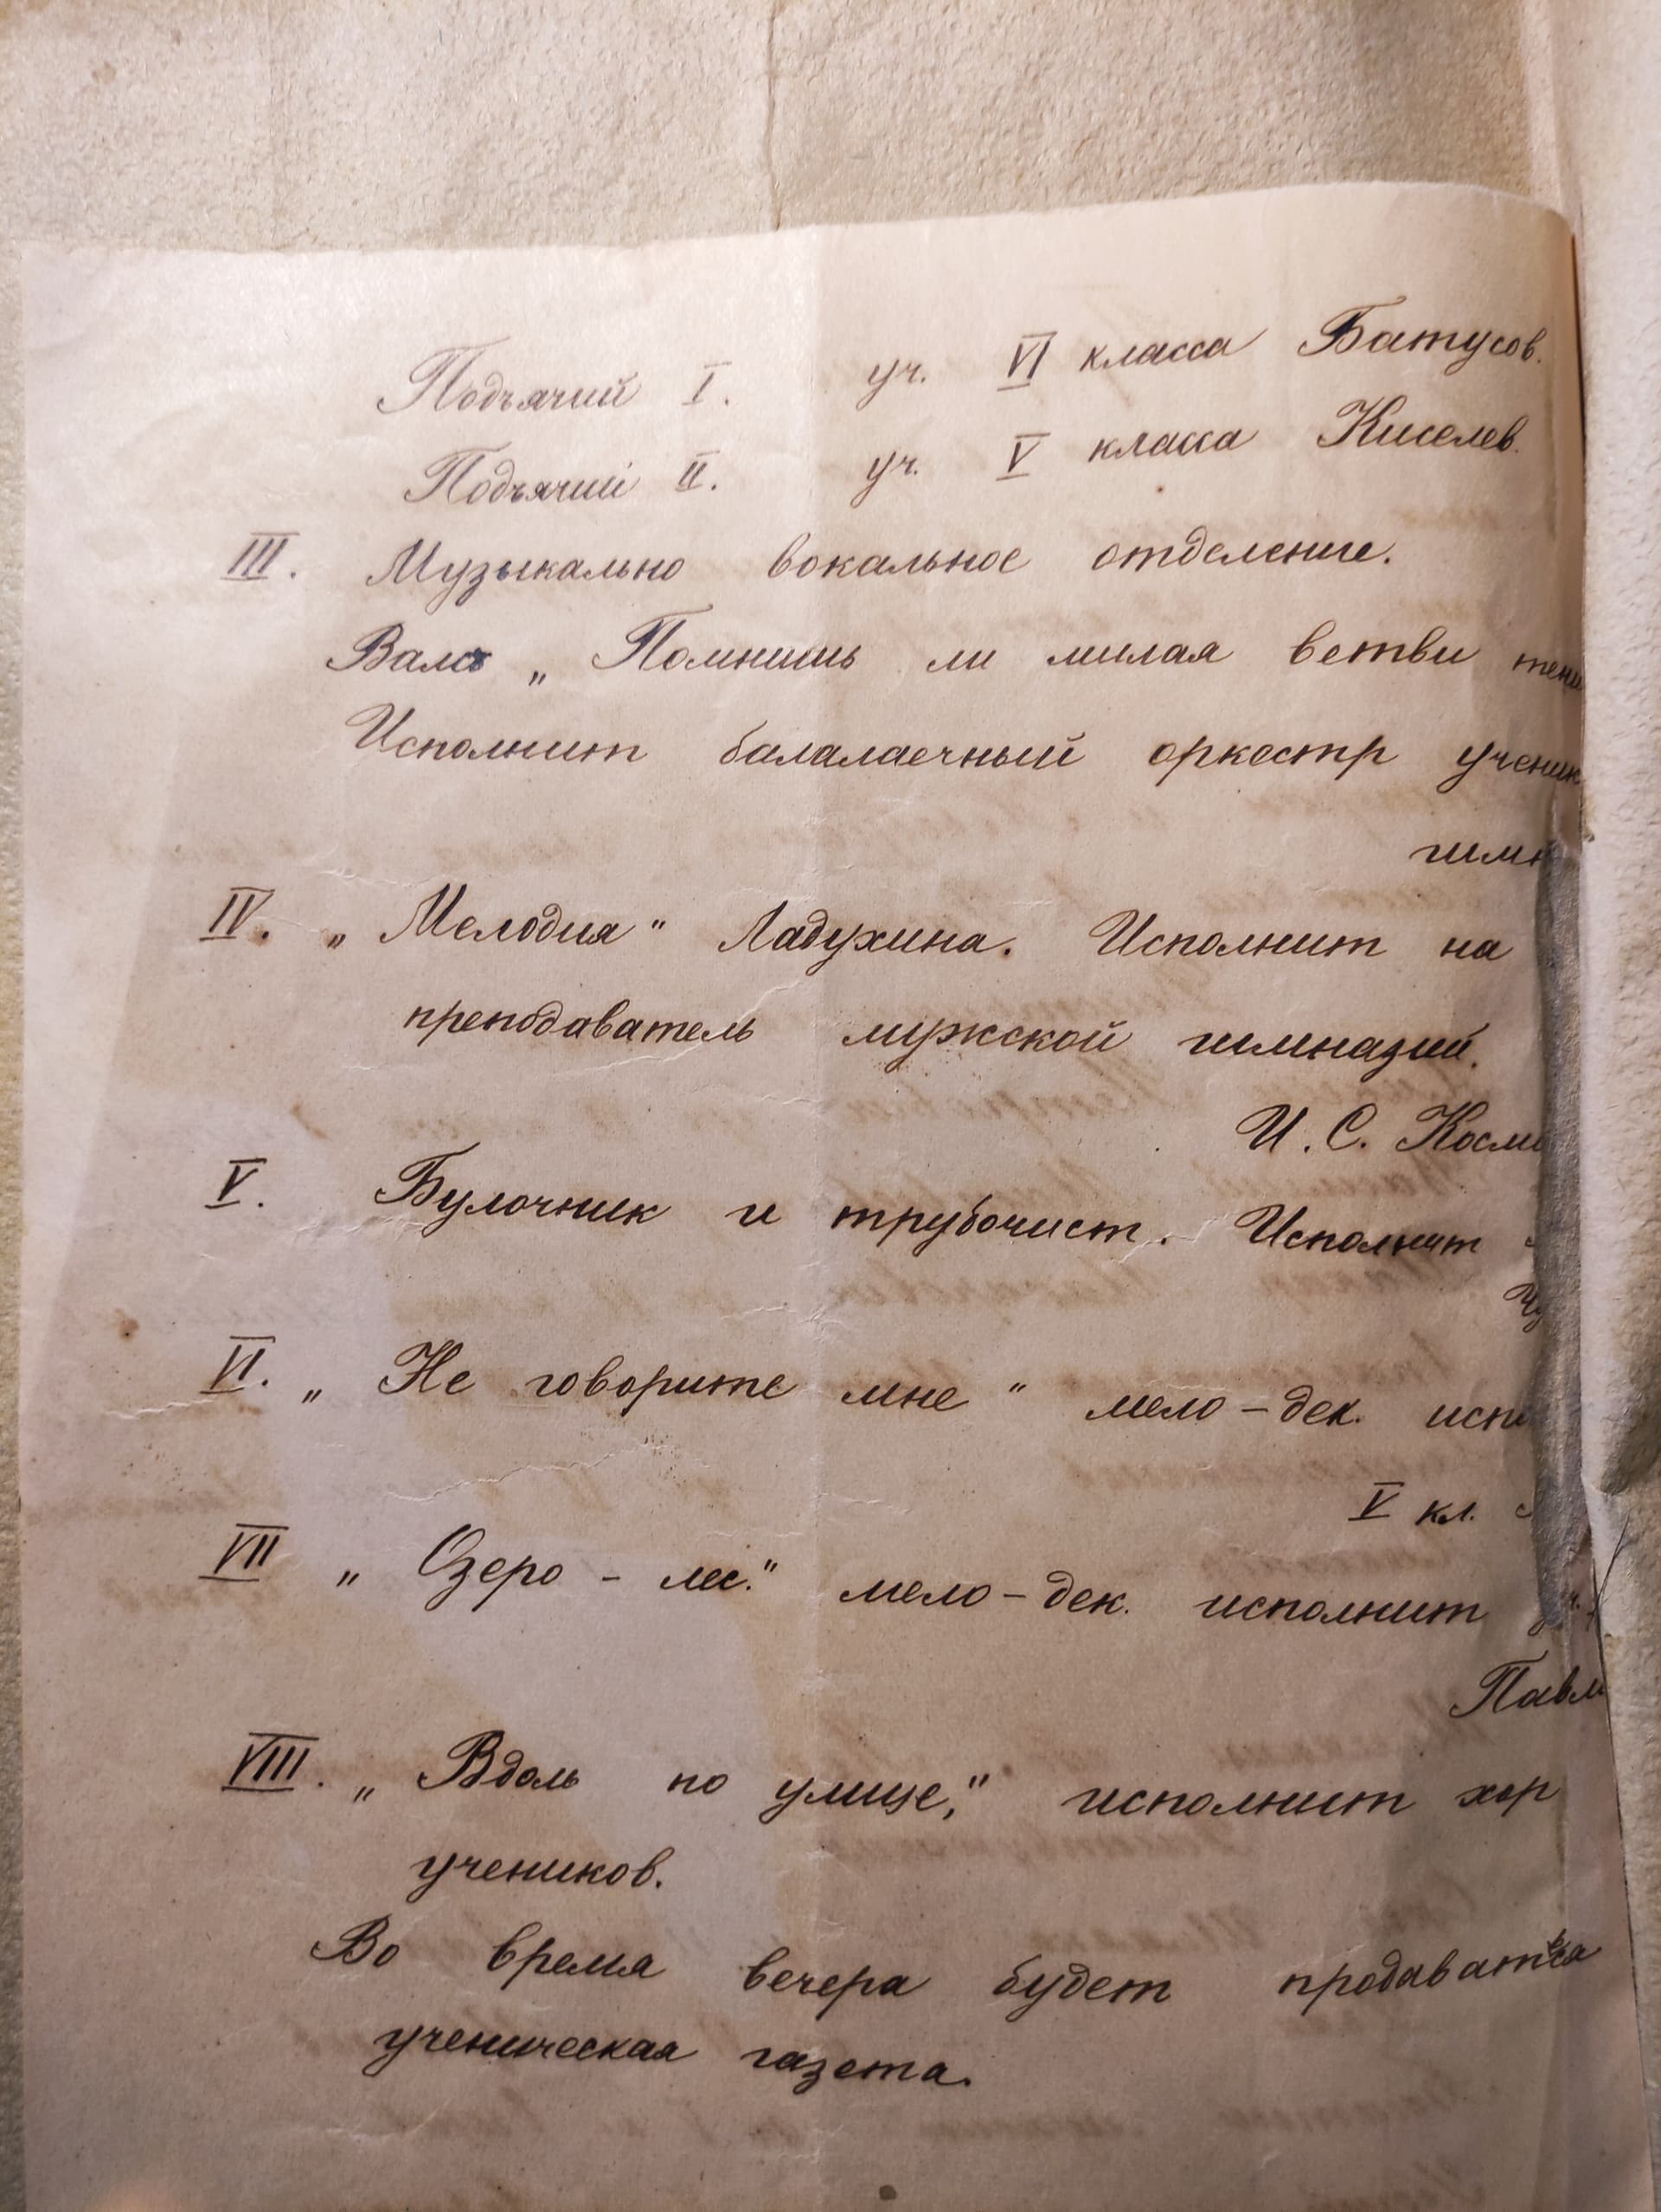 Подъячий I. уч. VI класса Батусов.
Подъячий II. уч. V класса Киселев.
III. Музыкально вокальное отделение.
Вальс „ Помнишь ли милая ветви тени
Исполнит балалаечный оркестр ученик
гимн
IV. „ Мелодия " Ладухина. Исполнит на
преподаватель мужской гимназий.
И. С. Косми
V. Булочник и трубочист. Исполнит
VI. „ Не говорите мне " мело - дек. испо
V кл.
VII „ Озеро - лес." мело - дек. исполнит
Павл
VIII. „ Вдоль по улице," исполнит хор
учеников.
Во время вечера будет продаваться
ученическая газета.